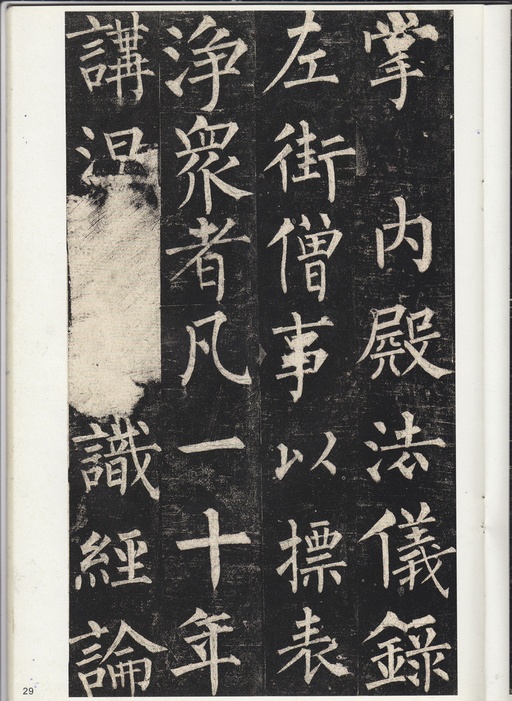 掌内殿法儀録
左街僧事以標表
浄衆者凡一十年
講涅識經論
29